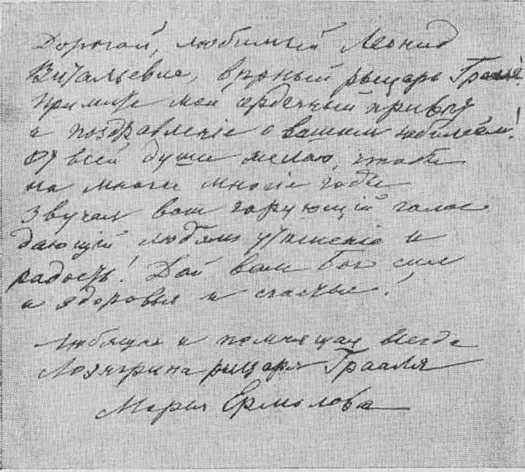 Дорогой, любимый Леонид
Витальевич, вѣрный рыцарь Грааля!
Примите мой сердечный привѣт
и поздравленіе с вашим юбилеем!
От всей души желаю, чтобы
на многи многіе годы
звучал ваш чарующій голос
дающій людям утѣшеніе и
радость! Дай вам Бог сил
и здоровья и счастье!
Любящая и помнящая всегда
Лоэнгрина рыцаря Грааля
Мария Ермолова